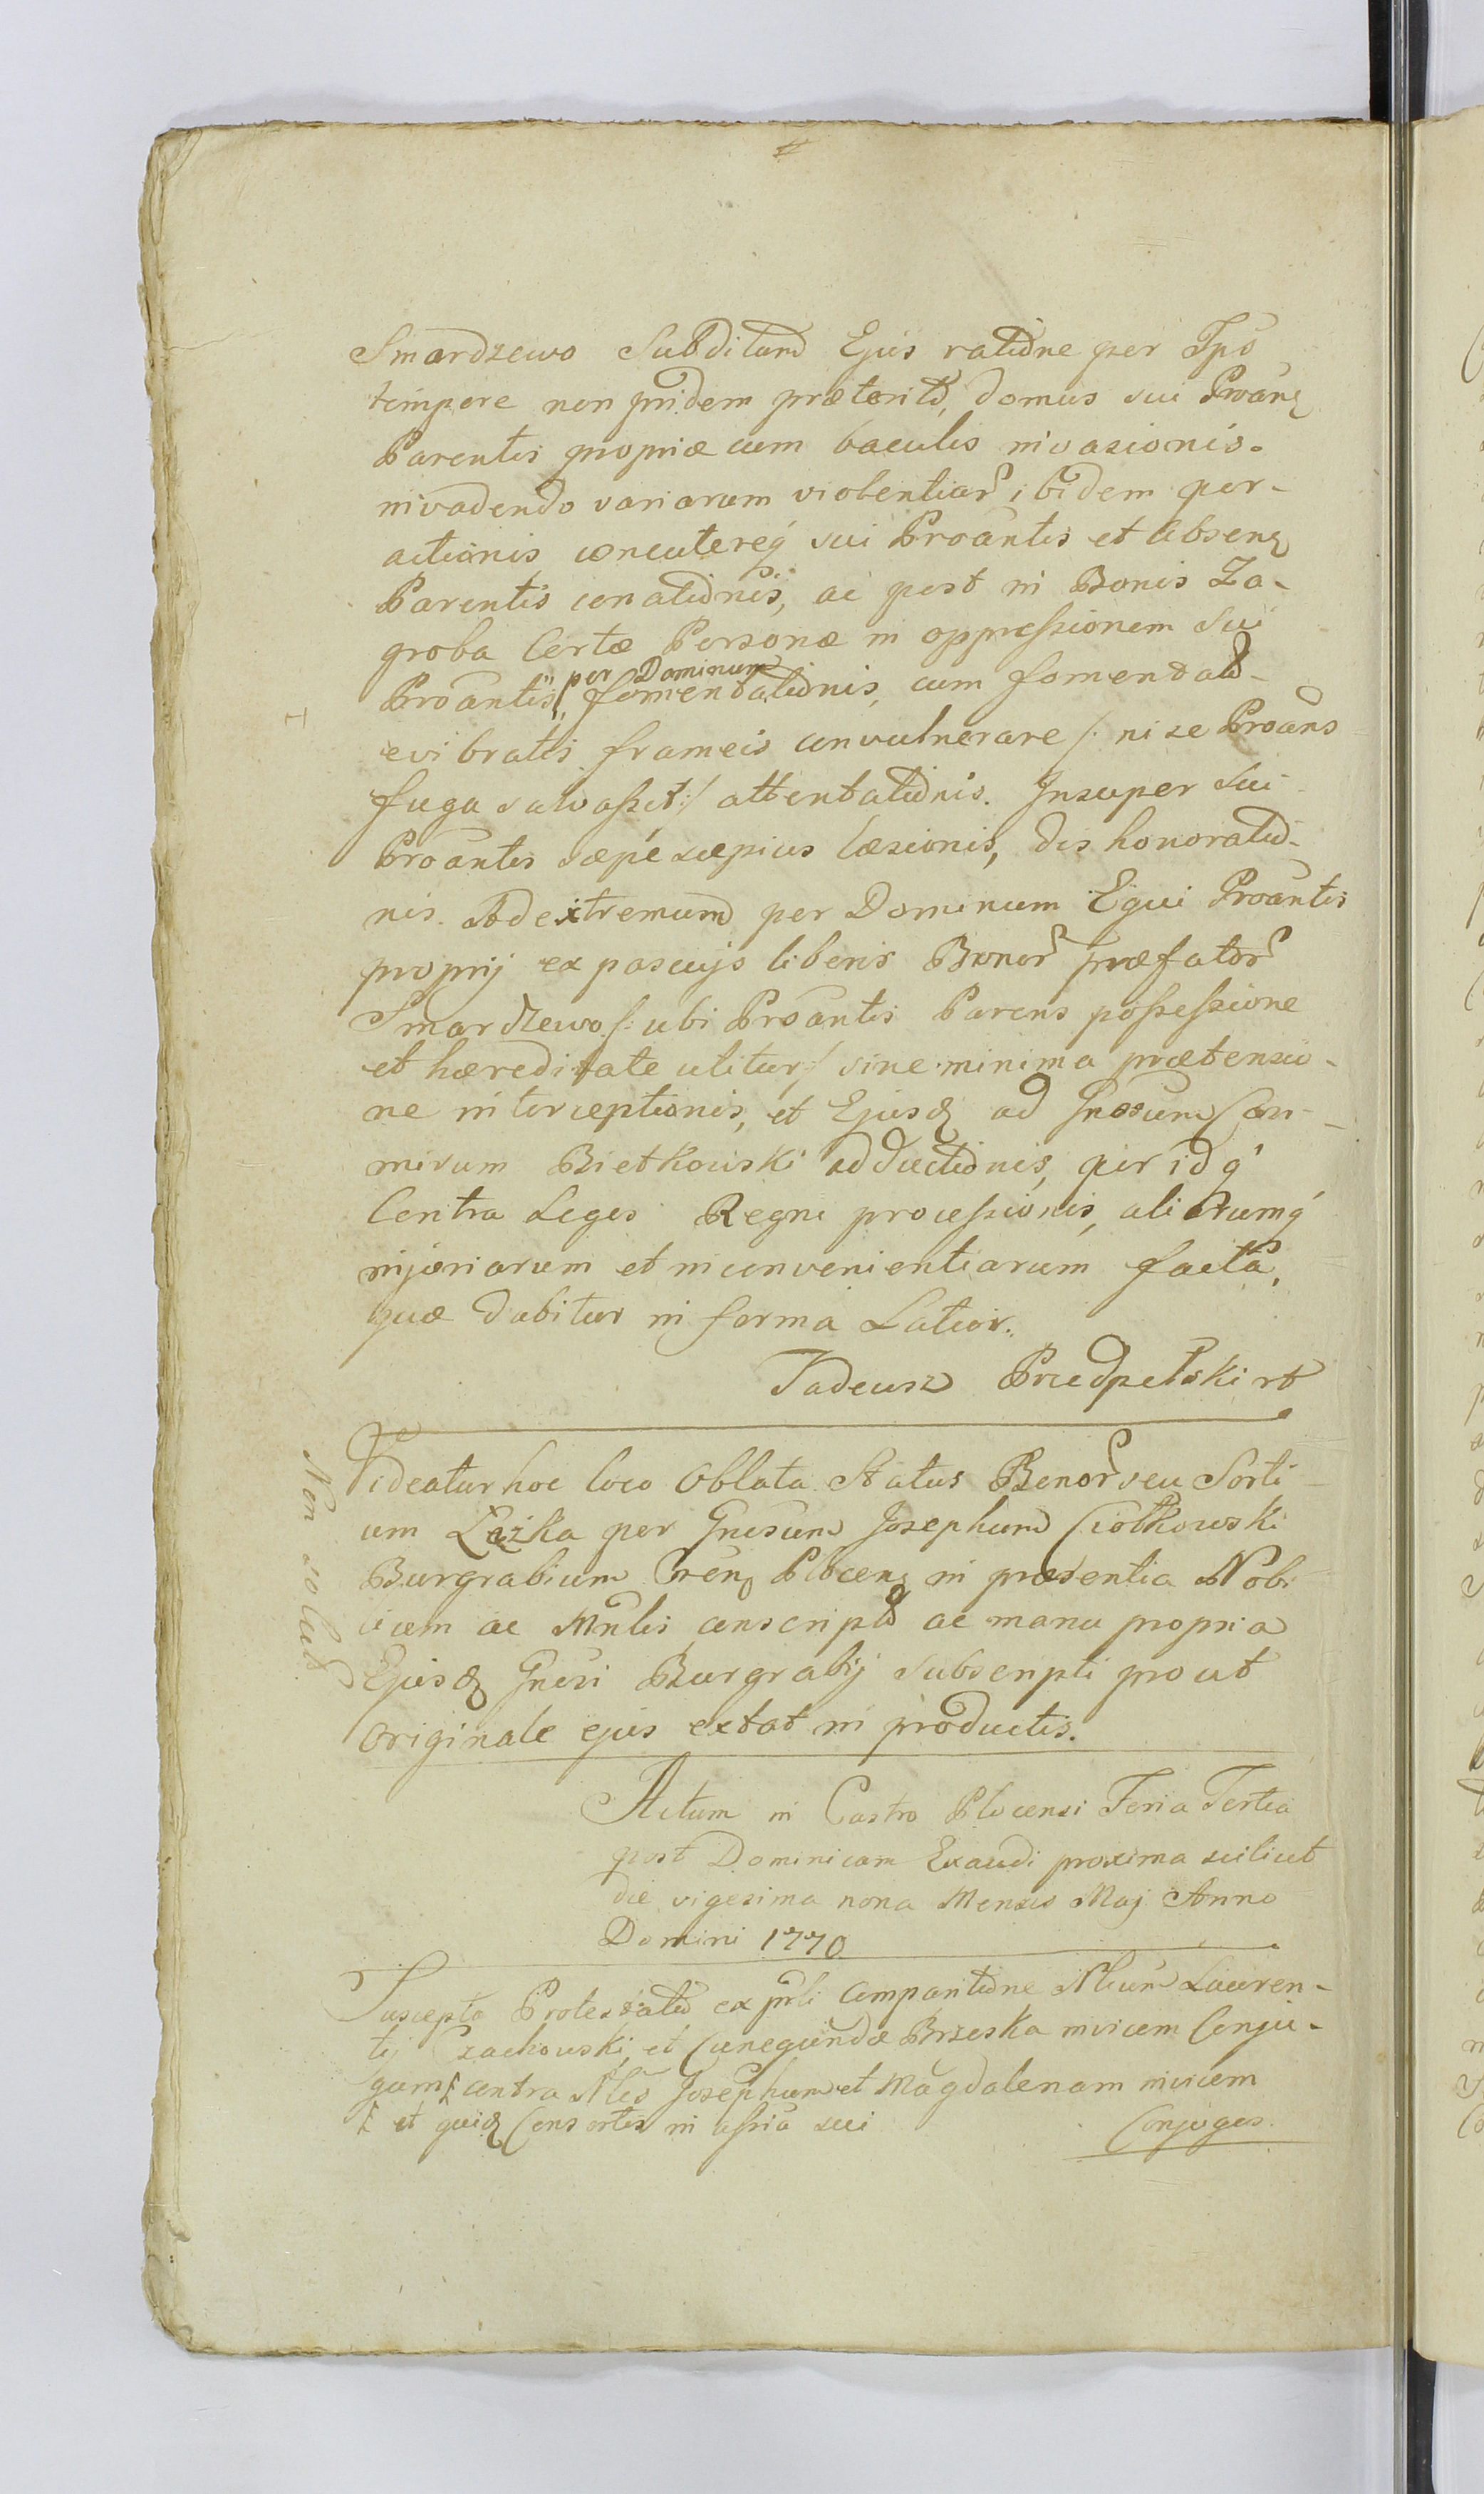 Smardzewo Subditum Ejus ratiōne per Ipō
tempore non pridem præterito, domus sui Proāng
Parentis propriæ cum baculis invasionis.
invadendo variarum violentiar ibidem per-
actionis concutereq́ sui Proāntis et Absenz
Parentis conatiōnis, ac post in Bonis Za-
groba Certæ Personæ in oppreſsionem Sui
Proāntis per Dominum fomentatiōnis, cum fomentato
evibratis frameis convulnerare /: ni se Proāns
fuga salvaſset :/ attentatiōnis. Insuper Sui
Proāntis sæpé sæpius læsionis, dis honoratiō-
nis. Ad extremum per Dominum Equi Proāntis
proprij ex pascuijs liberis Bonor præfator
Smardzewo /: ubi Proāntis Parens poſseſsione
et hæreditate utitur :/ sine minima prætensio-
ne interceptionis, et Ejusd ad Gnosum Casi-
mirum Bietkowski adductiōnis, per id q́
Contra Leges Regni proceſsionis, aliarumq́
injuriarum et inconvenientiarum facta,
quæ dabitur in forma Latior.
Tadeusz Przedpełski rt
Videatur hoc loco Oblata Status Bonor seu Sorti
um Łążka per Gnosum Josephum Ciołkowski
Burgrabium Cren Płocen in præsentia Nobi
lium ac Mnlis conscripto ac manu propria
Ejusd Gnosi Burgrabij subscripti prout
Originale ejus extat in productis.
Non solut
Actum in Castro Plocensi Feria Tertia
post Dominicam Exaudi proxima scilicet
die vigesima nona Mensis Maj Anno
Domini 1770
Suscepta Protestatio ex pnli Comparitiōne Nlium Lauren-
tij Czachowski, et Cunegundæ Brzeska invicem Conju-
gum contra Nles Josephum et Magdalenam invicem
et quid Consortis in aſsia sui
Conjuges